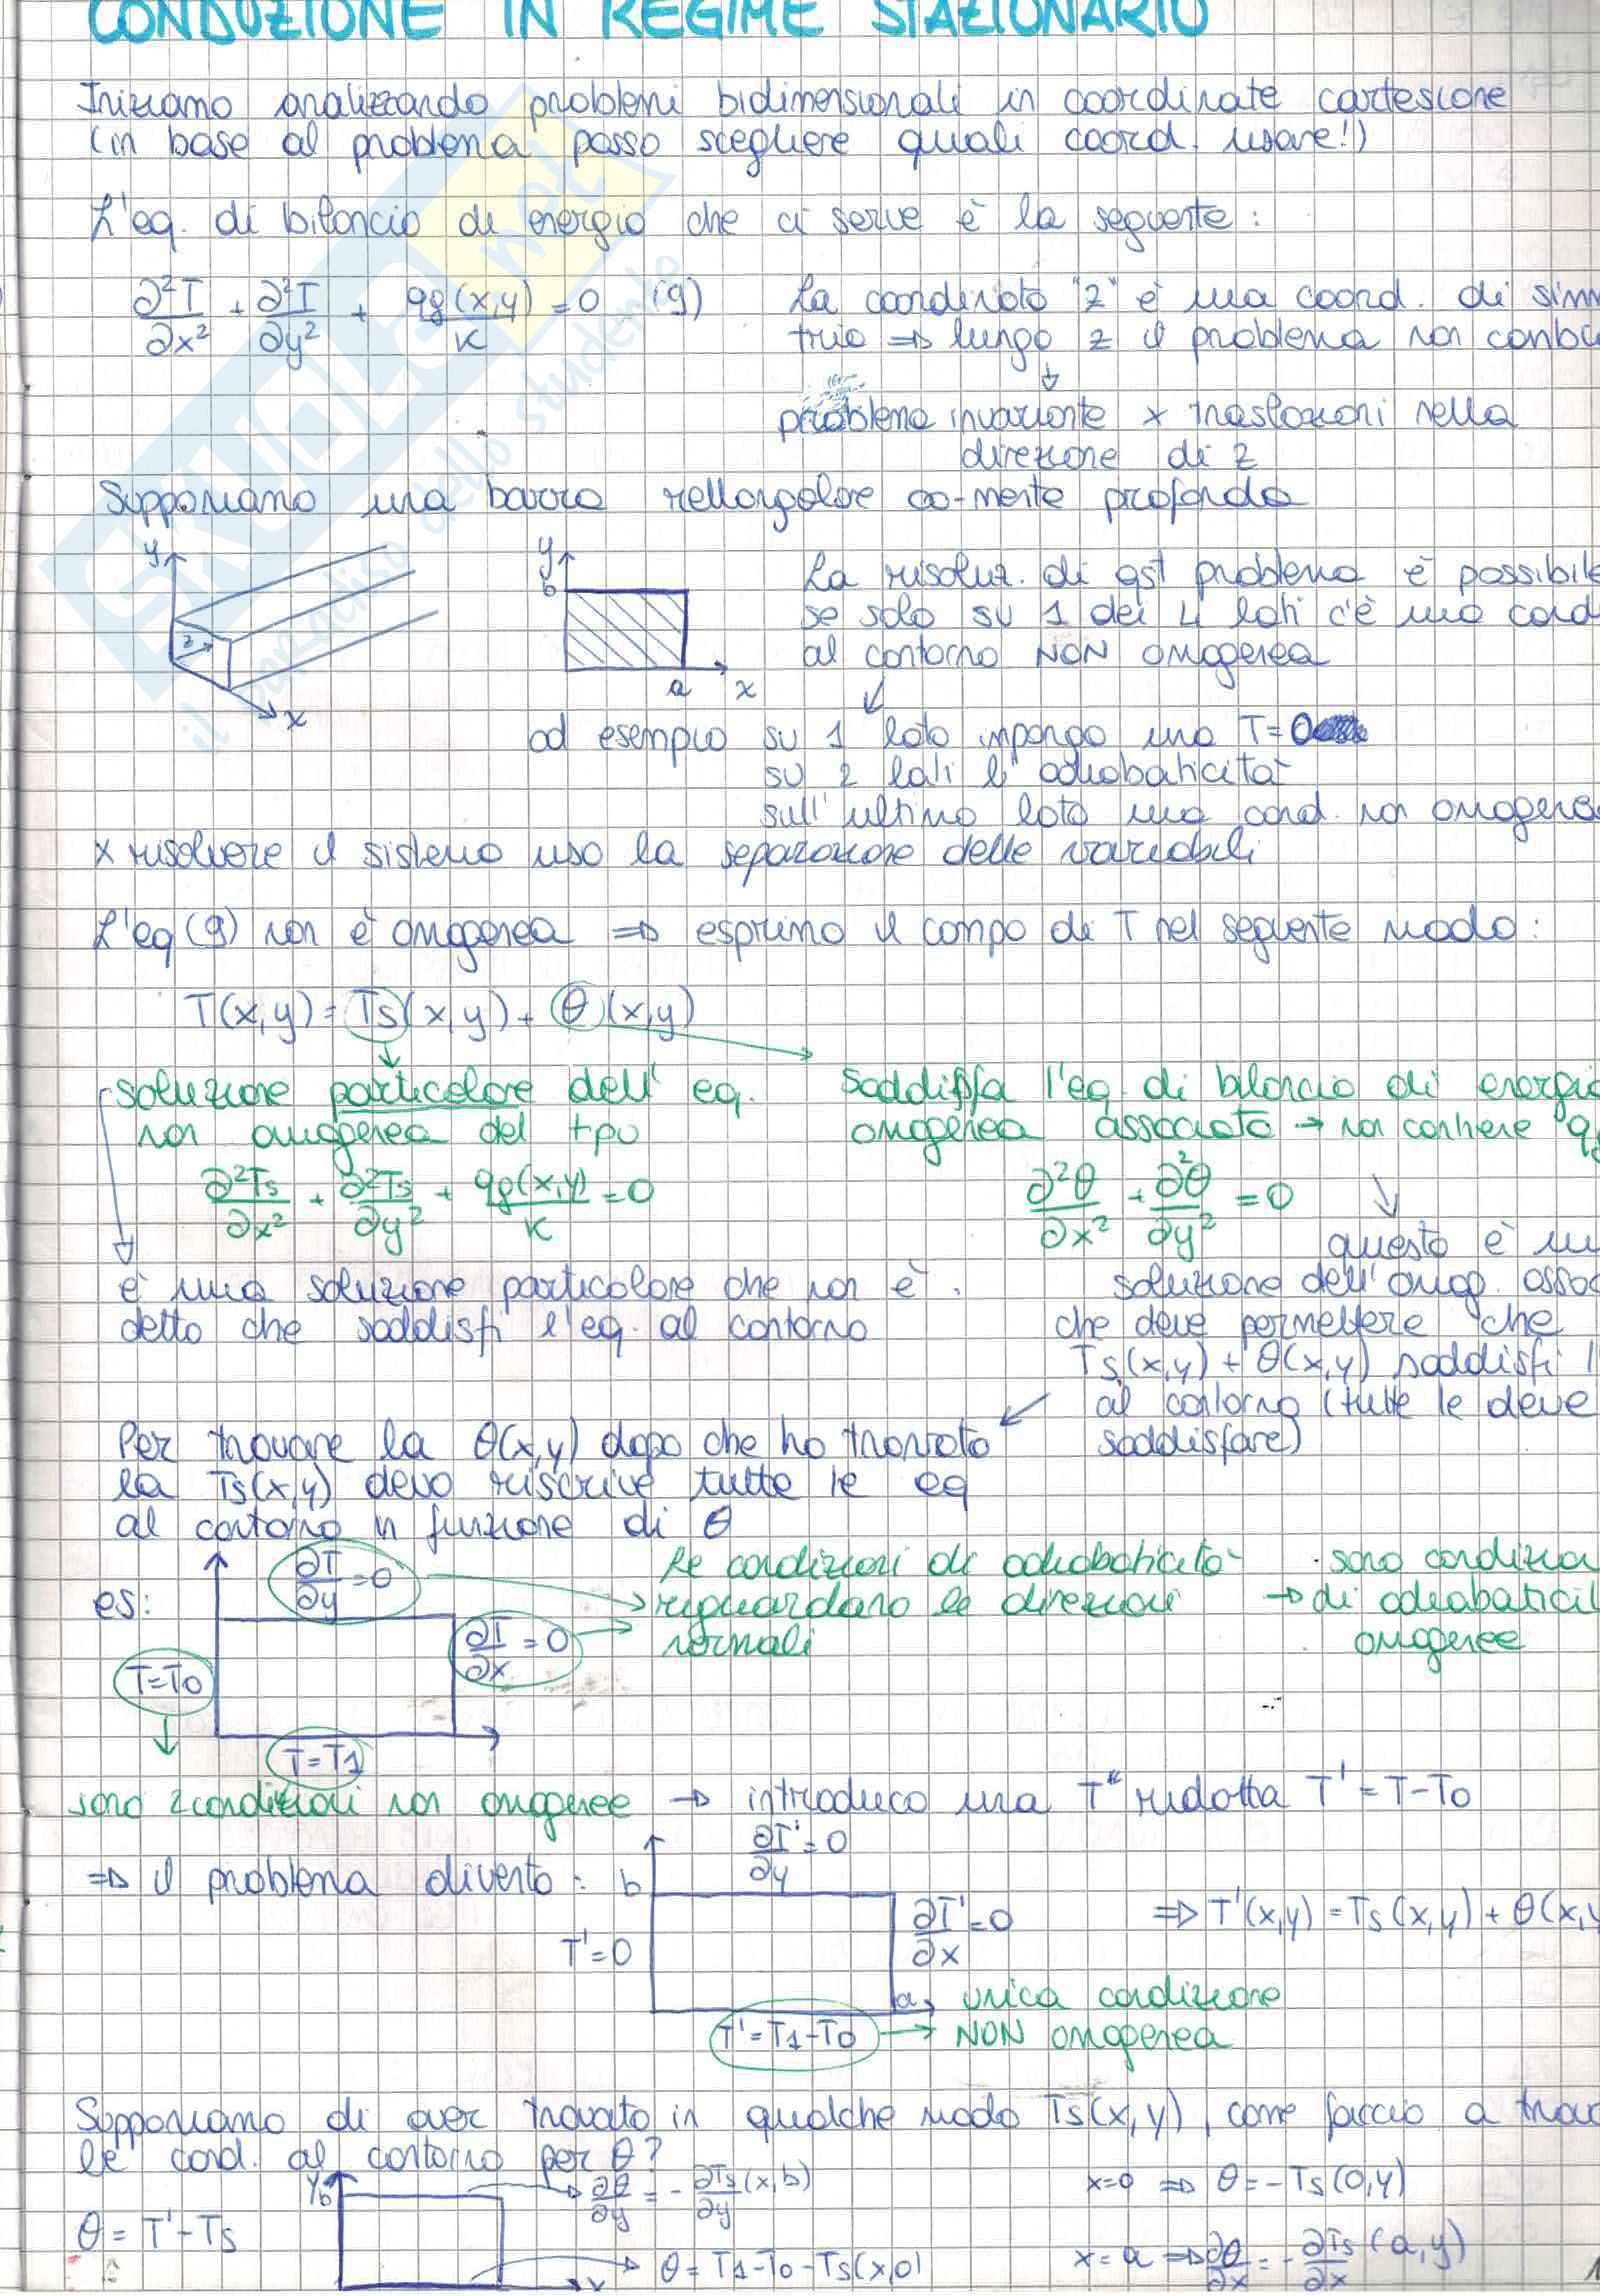 CONDUZIONE IN REGIME STAZIONARIO
Iniziamo analizzando problemi bidimensionali in coordinate cartesiane
(in base al problema posso scegliere quali coord. usare!)
L'eq. di bilancio di energia che ci serve è la seguente:
∂²T/∂x² + ∂²T/∂y² + qg(x,y)/k = 0 (9)
La coordinata "z" è una coord. di simm
tria ⇒ lungo z il problema non cambia
↓
problema invariante x traslazioni nella
direzione di z
Supponiamo una barra rettangolare ∞-mente profonda
y
z
x
y
b
a
x
La risoluz. di qst problema è possibile
se solo su 1 dei 4 lati c'è una cond
al contorno NON omogenea
ad esempio su 1 lato impongo una T=0
su 2 lati l'adiabaticità
sull'ultimo lato una cond. non omogenea
x risolvere il sistema uso la separazione delle variabili
L'eq (9) non è omogenea ⇒ esprimo il campo di T nel seguente modo:
T(x,y) = Ts(x,y) + θ(x,y)
soluzione particolare dell'eq.
non omogenea del tipo
∂²Ts/∂x² + ∂²Ts/∂y² + qg(x,y)/k = 0
è una soluzione particolare che non è
detto che soddisfi l'eq. al contorno
Soddisfa l'eq. di bilancio di energia
omogenea associata → non contiene qg
∂²θ/∂x² + ∂²θ/∂y² = 0
questa è un
soluzione dell'omog. assoc
che deve permettere che
Ts(x,y) + θ(x,y) soddisfi l
al contorno (tutte le deve
soddisfare)
Per trovare la θ(x,y) dopo che ho trovato
la Ts(x,y) devo riscrive tutte le eq
al contorno in funzione di θ
es:
∂T/∂y = 0
∂T/∂x = 0
T=T0
T=T1
Le condizioni di adiabaticità
riguardano le direzioni
normali
sono condizio
→ di adiabaticit
omogenee
sono 2 condizioni non omogenee → introduco una Tª ridotta T' = T-T0
⇒ il problema diventa:
b
∂T'/∂y = 0
T'=0
∂T'/∂x = 0
a
T'=T1-T0
→ unica condizione
NON omogenea
⇒ T'(x,y) = Ts(x,y) + θ(x,y
Supponiamo di aver trovato in qualche modo Ts(x,y), come faccio a trov
le cond. al contorno per θ?
θ = T' - Ts
y
b
x
∂θ/∂y = - ∂Ts/∂y (x,b)
θ = T1-T0-Ts(x,0)
x=0 ⇒ θ=-Ts(0,y)
x=a ⇒ ∂θ/∂x = - ∂Ts/∂x (a,y)
1
SKUOLA.net
il paradiso dello studente